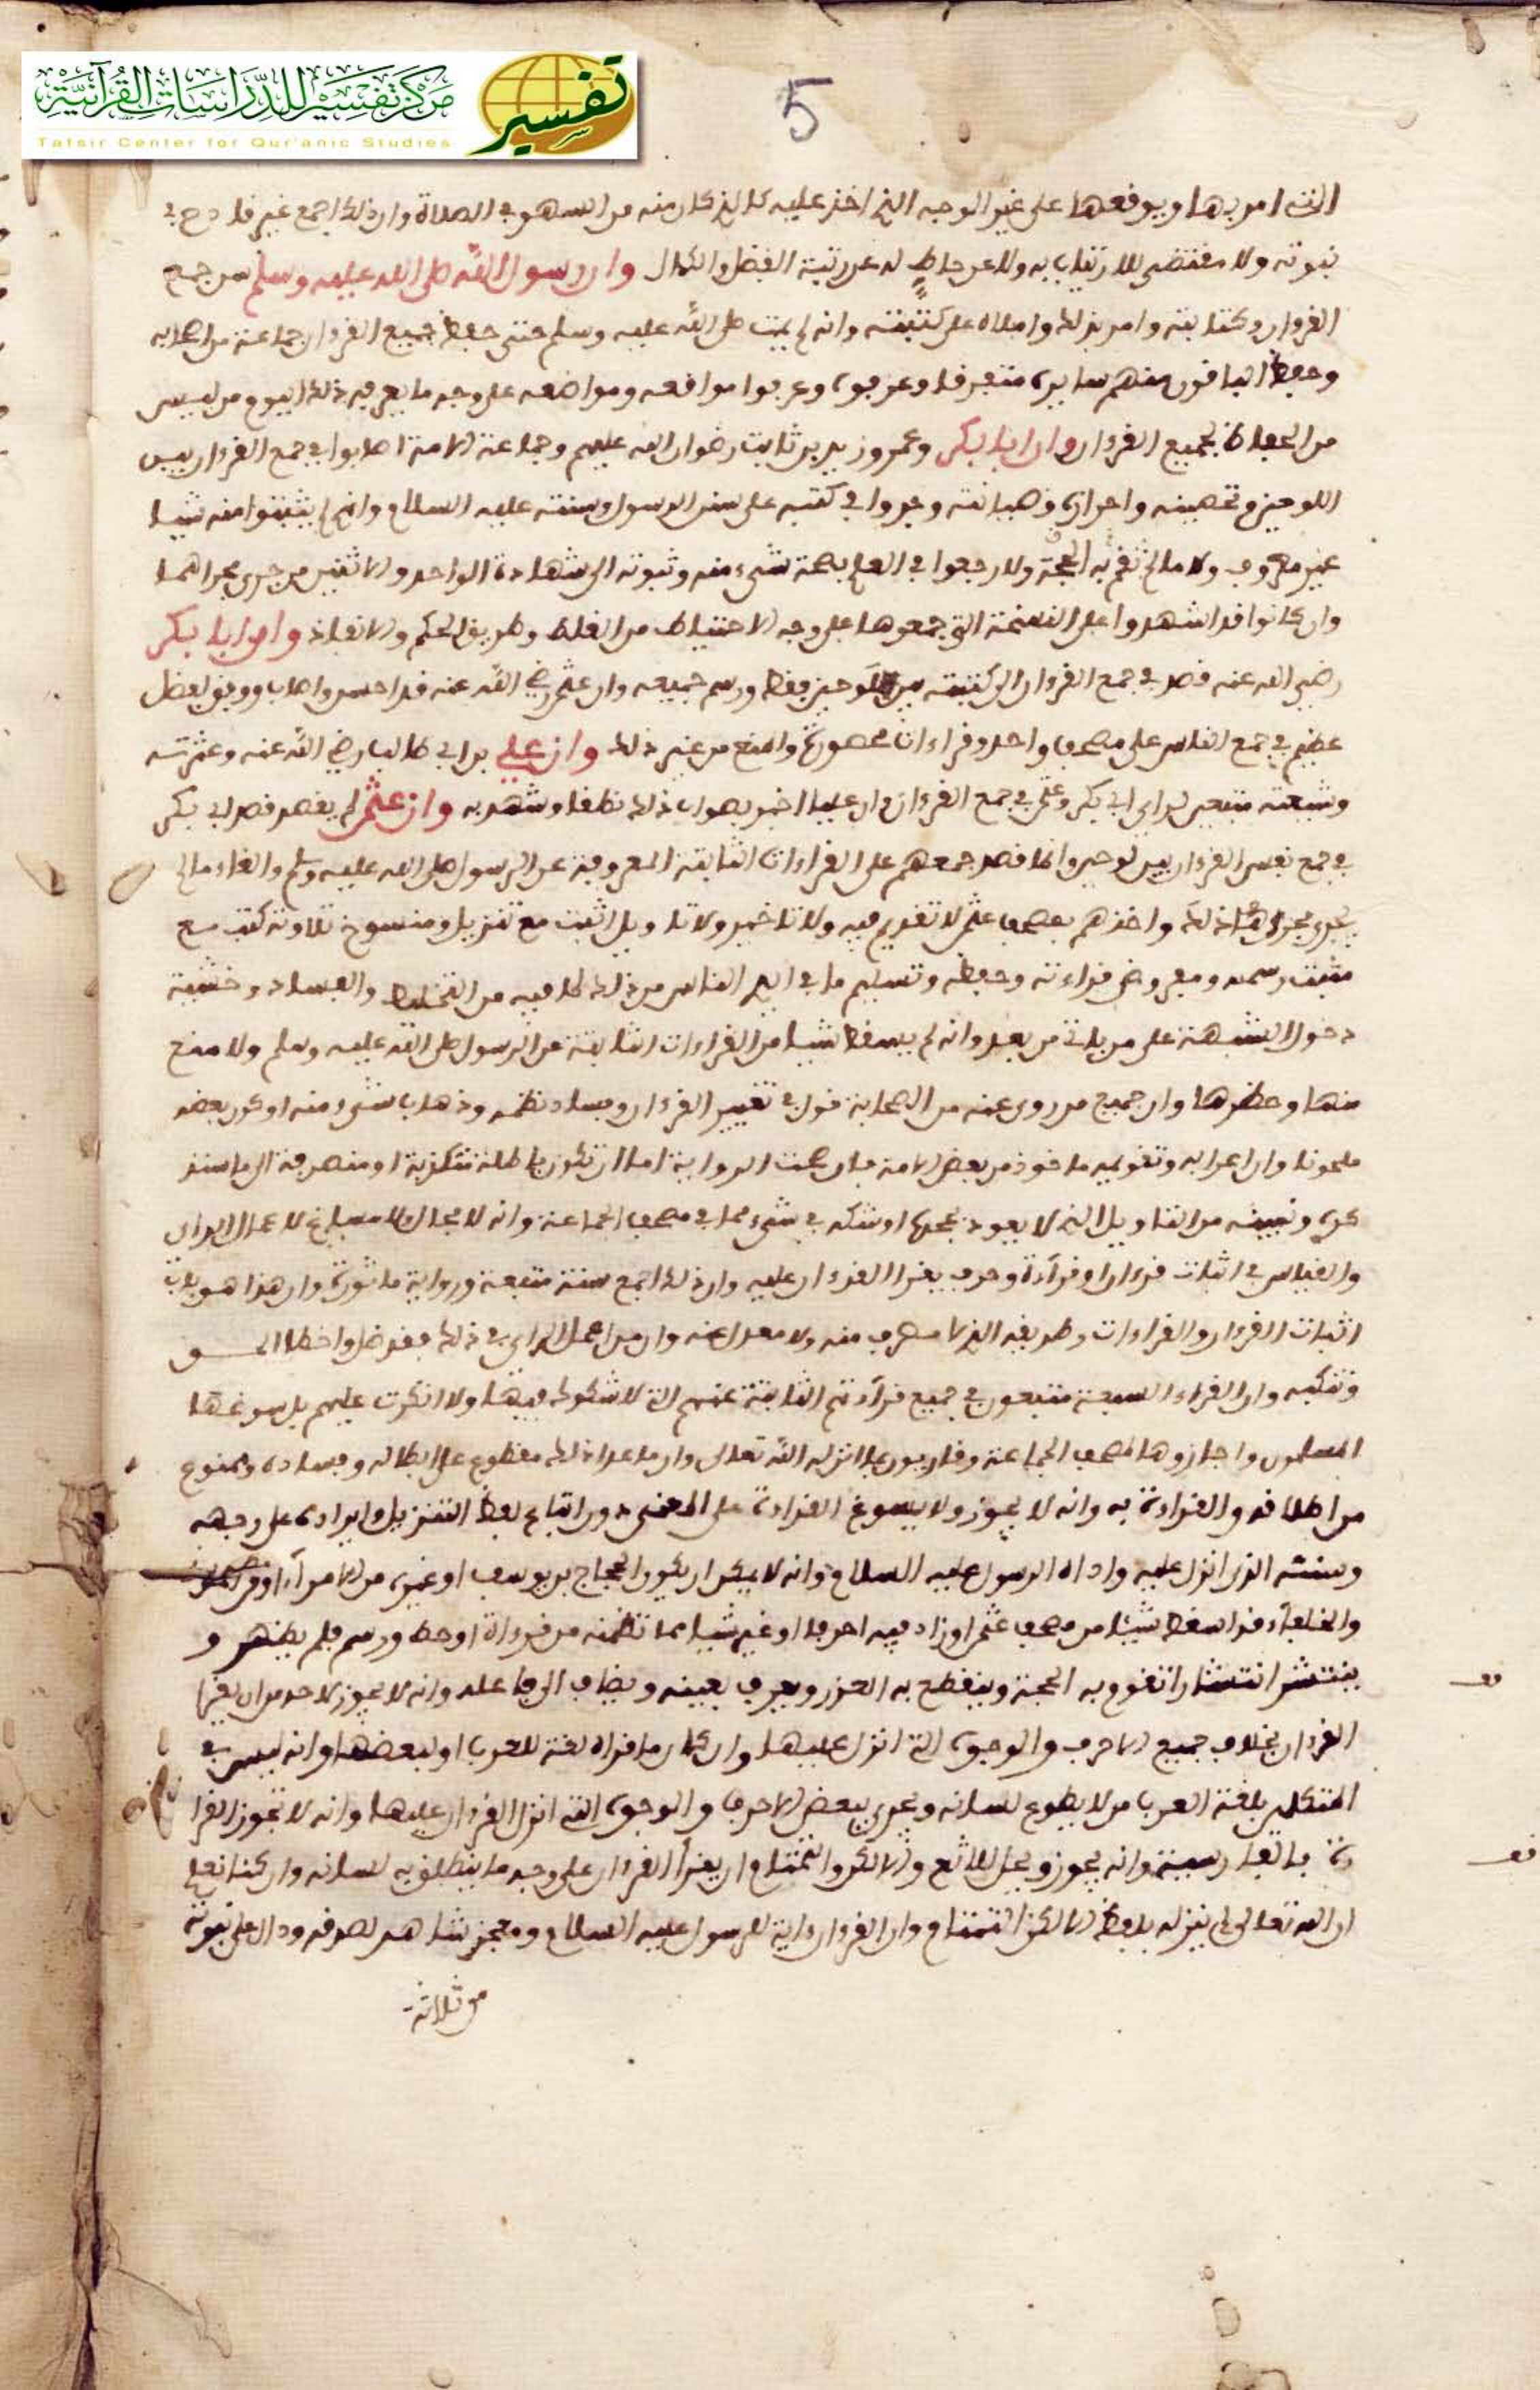 مركز تفسير للدراسات القرآنية
تفسير
Tafsir Center for Qur'anic Studies
5
التي امر بها ويوقعها على غير الوجه الذي اخذ عليه كالذي كان منه من السهو في الصلاة وان ذلك اجمع غير قادح في
نبوته ولا مقتض للارتياب به ولا عن حاط له عن رتبة الفضل والكمال وان رسول الله صلى الله عليه وسلم سن جمع
القرءان وكتابته وامر بذلك واملاه على كتبته وانه لم يمت صلى الله عليه وسلم حتى حفظ جميع القرءان جماعة من اصحابه
وحفظ الباقون منهم سايره متفرقا وعرفوه وعرفوا مواقعه ومواضعه على وجه ما يعرف ذلك اليوم من ليس
من الحفاظ لجميع القرءان وان ابا بكر وعمر وزيد بن ثابت رضوان الله عليهم وجماعة الامة اصابوا في جمع القرءان بين
اللوحين وتحصينه واحرازه وصيانته وجروا في كتبه على سنن الرسول وسنته عليه السلام وانهم لم يثبتوا منه شيا
غير معروف ولا ما لم تقم به الحجة ولا رجعوا في العلم بصحة شيء منه وثبوته الى شهادة الواحد والاثنين من جرى مجراهما
وان كانوا قد اشهدوا على النسخة التي جمعوها على وجه الاحتياط من الغلط وطريق الحكم والانفاذ وان ابا بكر
رضي الله عنه قصد في جمع القرءان الى كتبته بين اللوحين فقط ورسم جميعه وان عثمن رضي الله عنه قد احسن واصاب ووفق لفضل
عظيم في جمع الناس على مصحف واحد وقراءات محصورة والمنع من غير ذلك وان علي بن ابي طالب رضي الله عنه وعترته
وشيعته متبعين لراي ابي بكر وعثمن في جمع القرءان وان عليا اخبر بصواب ذلك نطقا وشهد به وان عثمن لم يقصد قصد ابي بكر
في جمع نفس القرءان بين لوحين وانما قصد جمعهم على القراءات الثابتة المعروفة عن الرسول صلى الله عليه وسلم والغاء ما لم
يجر مجرى ذلك واخذهم بمصحف عثمن لا تقديم فيه ولا تاخير ولا تاويل اثبت مع تنزيل ومنسوخ تلاوته كتب مع
مثبت رسمه ومفروض قراءته وحفظه وتسليم ما في ايدي الناس من ذلك لما فيه من التخليط والفساد وخشية
دخول الشبهة على من ياتي من بعد وانه لم يسقط شيا من القراءات الثابتة عن الرسول صلى الله عليه وسلم ولا منع
منها وحظرها وان جميع من روي عنه من الصحابة قول في تغيير القرءان وفساد نظمه وذهاب شيء منه او كون بعضه
ملحونا وان اعرابه وتقويمه ماخوذ من بعض الامة فان صحت الرواية اما ان تكون باطلة متكذبة او منصرفة الى ما سنذ
كره ونبينه من التاويل الذي لا يعود بجحده او شكه في شيء مما في مصحف الجماعة وانه لا مجال ولا مساغ لاعمال الراي
والقياس في اثبات قرءان او قراءة وحرف يقرا القرءان عليه وان ذلك اجمع سنة متبعة ورواية ماثورة وان هذا هو باب
اثبات القرءان والقراءات وطريقه الذي لا مصرف منه ولا معدل عنه وان من اعمل الراي في ذلك فقد ضل واخطا الحق
وتنكبه وان القراء السبعة متبعون في جميع قراءتهم الثابتة عنهم التي لا شكوك فيها ولا انكرت عليهم بل سوغها
المسلمون واجازوها لمصحف الجماعة وقارءون بما انزله الله تعالى وان ما عدا ذلك مقطوع على ابطاله وفساده وممنوع
من اطلاقه والقراءة به وانه لا يجوز ولا يسوغ القراءة على المعنى دون اتباع لفظ التنزيل وايراده على وجهه
وسننه الذي انزل عليه واداه الرسول عليه السلام وانه لا يمكن ان يكون الحجاج بن يوسف او غيره من الامراء
والخلفاء قد اسقط شيئا من مصحف عثمن او زاد فيه احرفا او غير شيا مما تظمنه من قراءة او خط ورسم فلم يظهر و
ينتشر انتشارا تقوم به الحجة وينقطع به العذر ويعرف بعينه ويضاف الى فاعله وانه لا يجوز لاحد من ان يقرا
القرءان بخلاف جميع الاحرف والوجوه التي انزل عليها وان كان ما قراه لغة للعرب او لبعضها وانه ليس في
المتكلم بلغة العرب من لا يطوع لسانه ويجري ببعض الاحرف والوجوه التي انزل القرءان عليها وانه لا تجوز القرا
ءة بالفارسية وانه يجوز ويحل للالثغ والالكن والتمتام ان يقرا القرءان على وجه ما ينطلق به لسانه وان كنا نعلم
ان الله تعالى لم ينزله بلفظ الالكن والتمتام وان القرءان ءاية للرسول عليه السلام ومعجز شاهد لصدقه ودال على نبوته
من ثلاثة